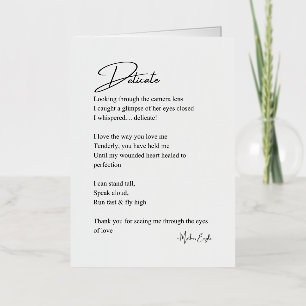 Delicate
Looking through the camera lens
I caught a glimpse of her eyes closed
I whispered... delicate!
I love the way you love me
Tenderly, you have held me
Until my wounded heart healed to
perfection
I can stand tall,
Speak aloud,
Run fast & fly high
Thank you for seeing me through the eyes
of love